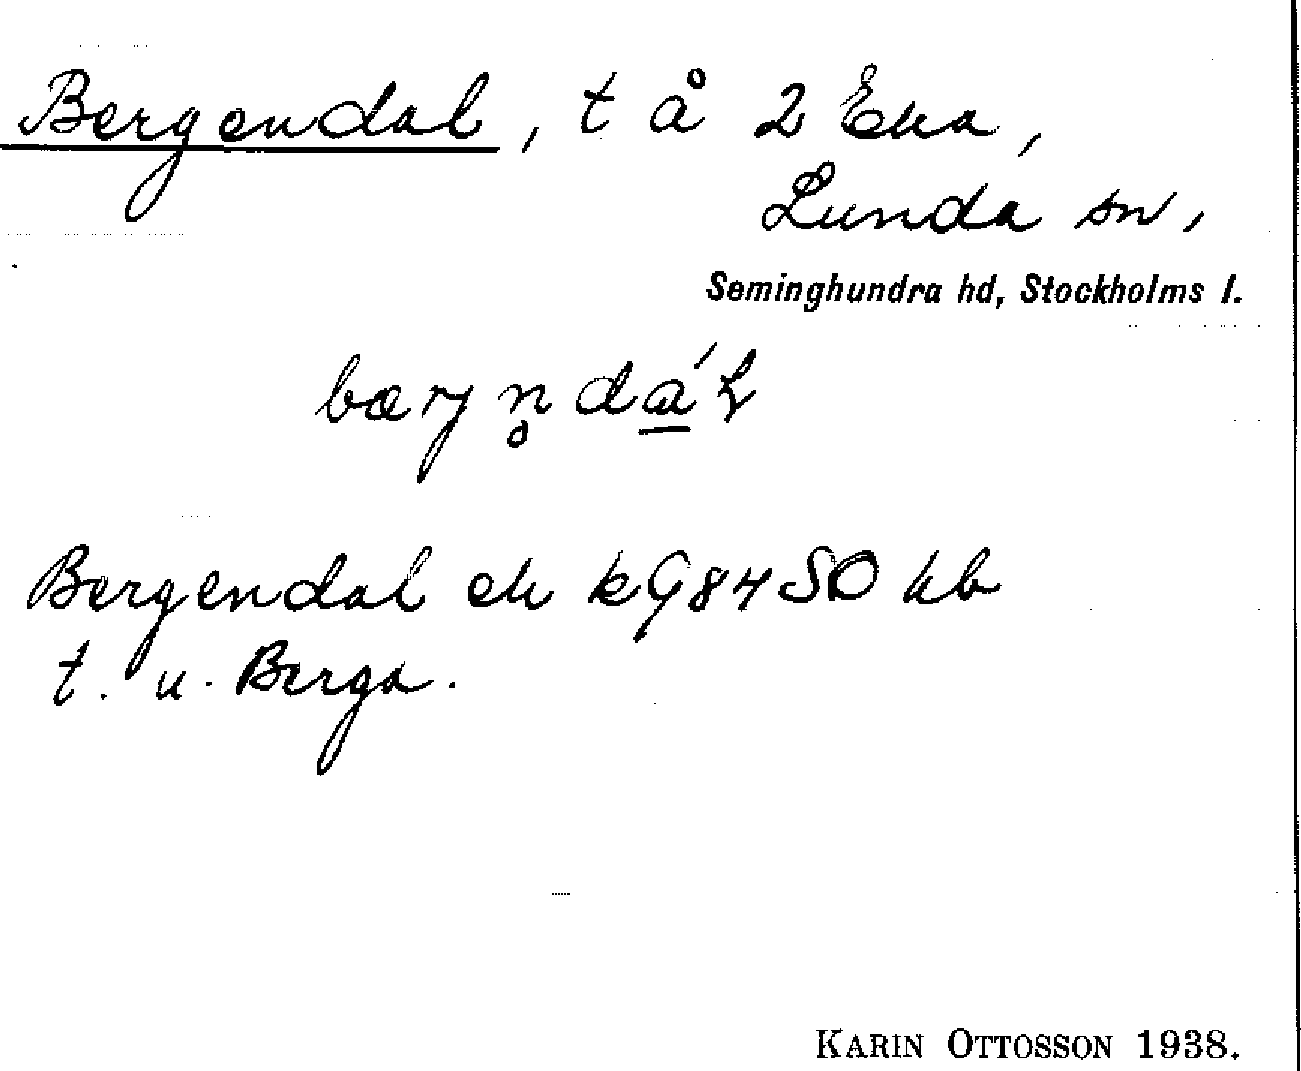 Bergendal, t å 2 Eka,
Lunda sn,
Seminghundra hd, Stockholms l.
bærjn̥dá̲ɫ
Bergendal ek k G 84 SO hb
t. u. Berga.
KARIN OTTOSSON 1938.